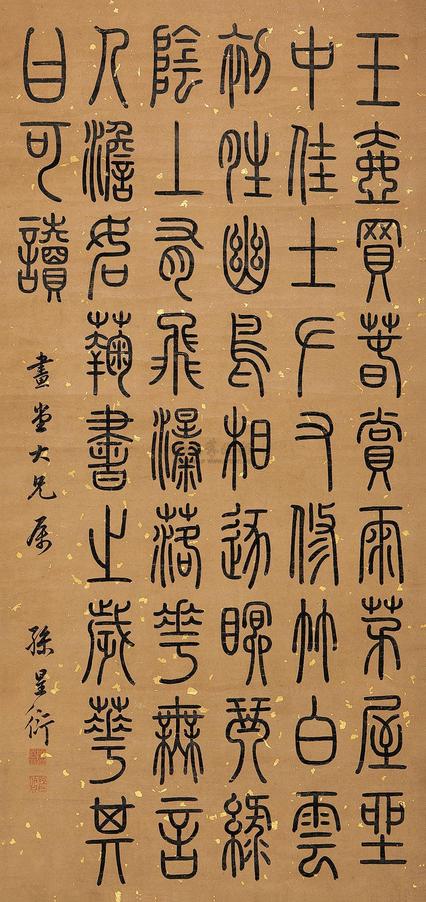 玉壺買春賞雨茅屋坐
中佳士左右修竹白雲
初晴幽鳥相逐眠琴綠
陰上有飛瀑落花無言
人澹如菊書之歲華其
曰可讀
畫堂大兄属
孫星衍